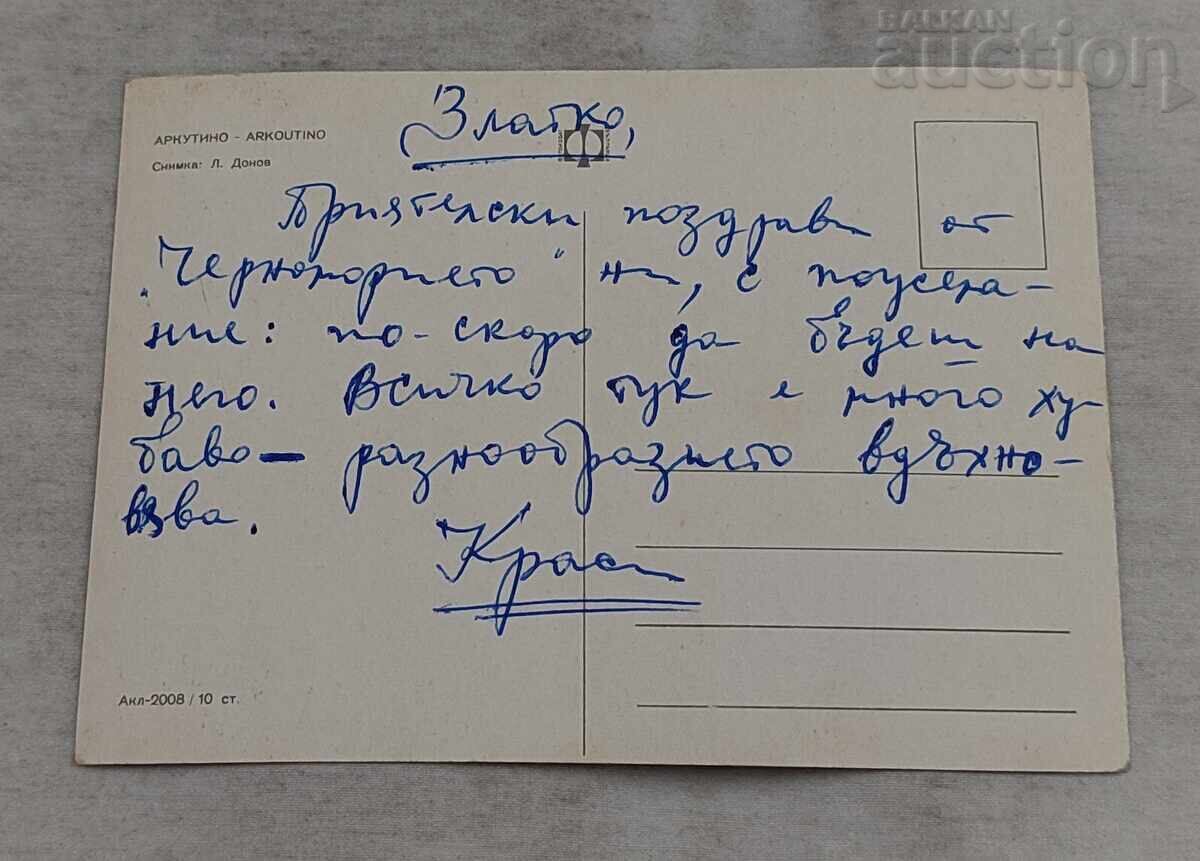 BALKAN
auction
АРКУТИНО - ARKOUTINO
Снимка: Л. Донов
Златко,
Приятелски поздрави от
"Черноморието" ни, с
ние: по-скоро да бъдеш на
него. Всичко тук е много ху-
баво — разнообразието вдъхно-
вява.
Краси
Акл-2008 / 10 ст.